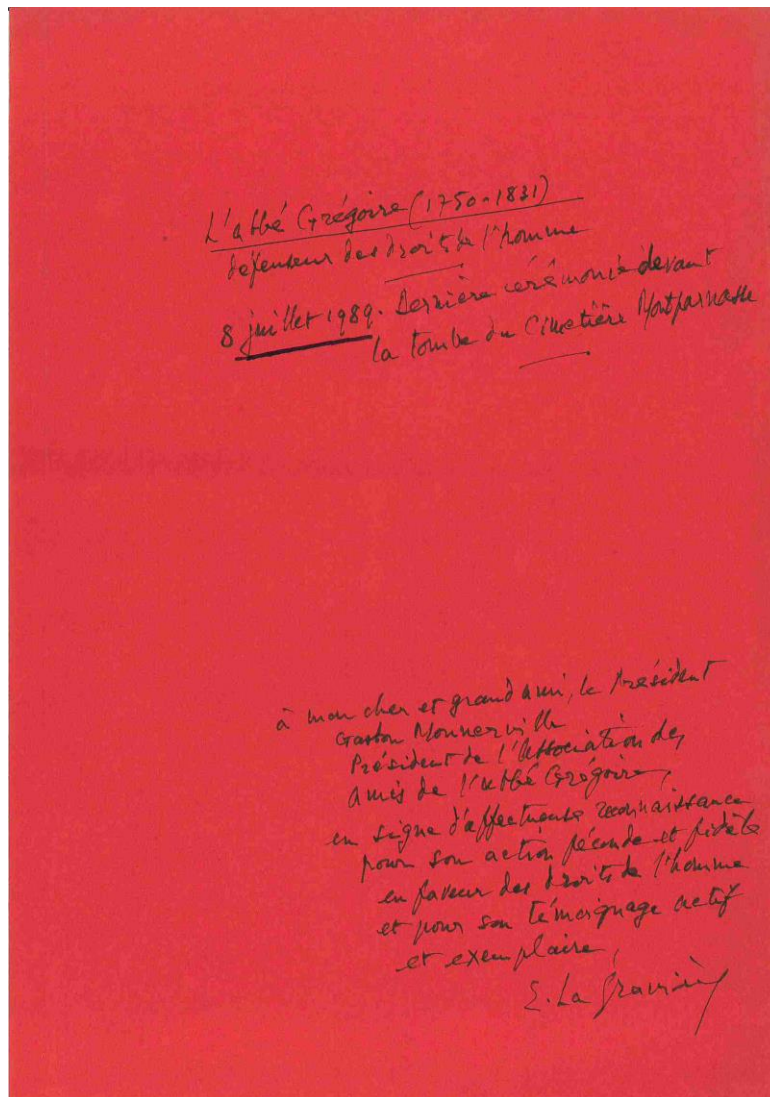 L'abbé Grégoire (1750-1831)
défenseur des droits de l'homme
8 juillet 1989. Dernière cérémonie devant
la tombe du Cimetière Montparnasse
à mon cher et grand ami, le Président
Gaston Monnerville
Président de l'Association des
amis de l'abbé Grégoire,
en signe d'affectueuse reconnaissance
pour son action féconde et fidèle
en faveur des droits de l'homme
et pour son témoignage actif
et exemplaire,
E. La Gravière